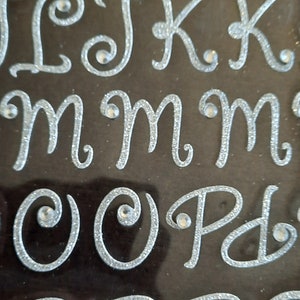 L J K K
m m m m
O O P P